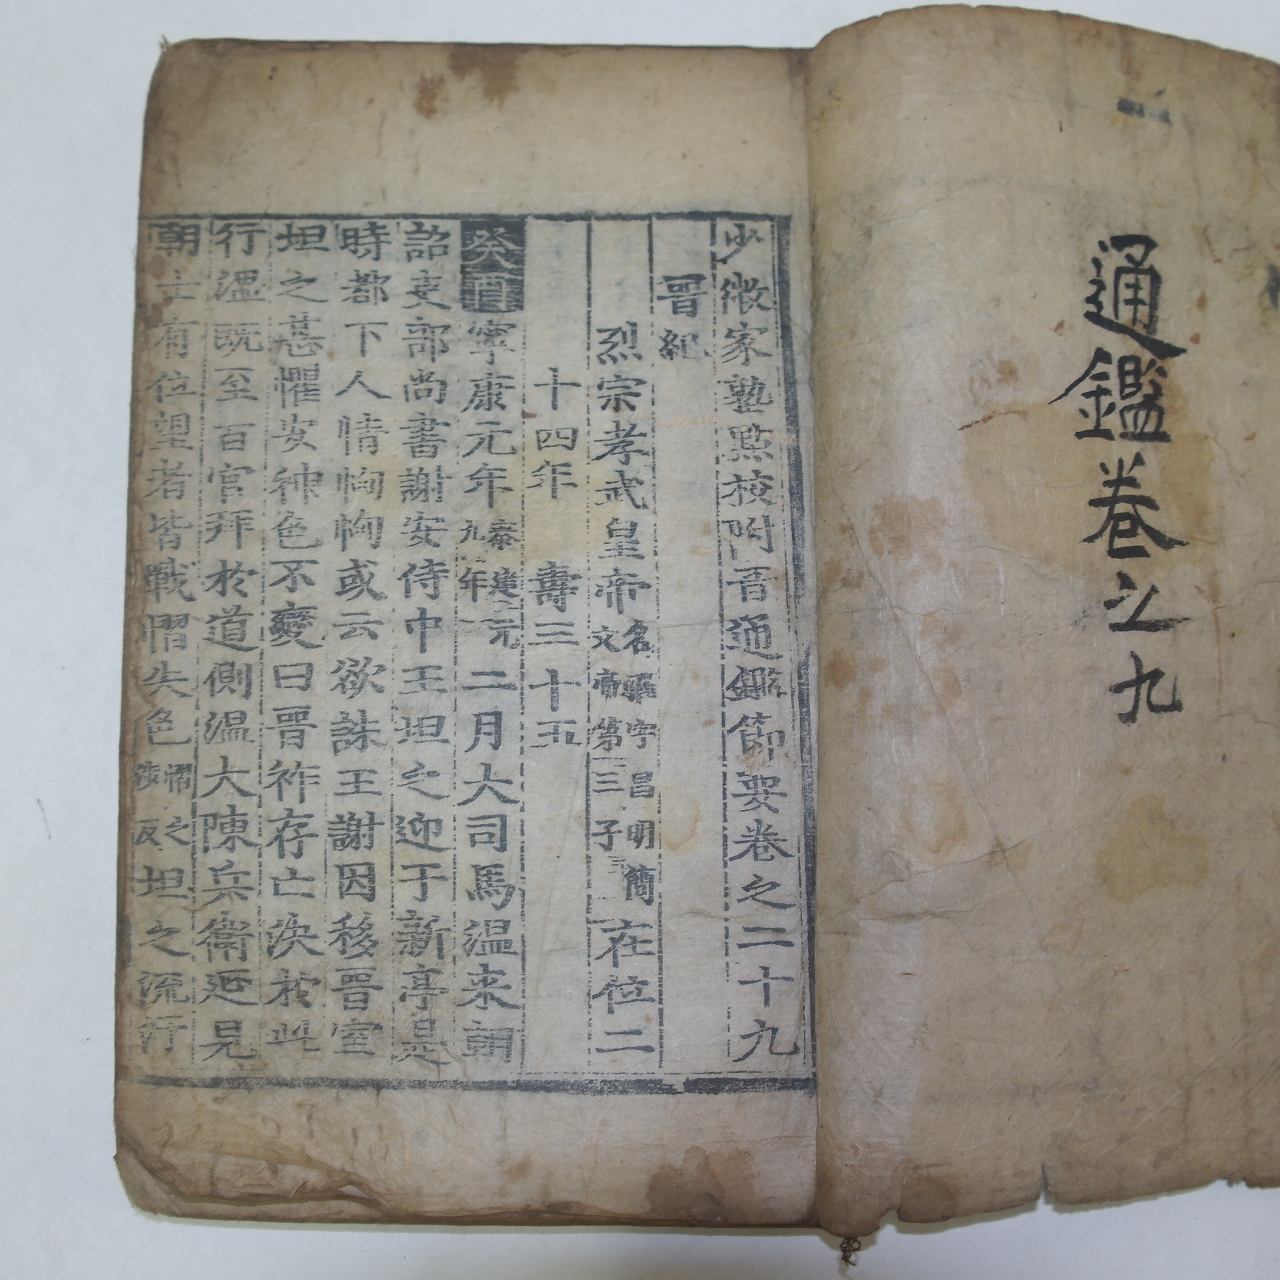 通鑑卷之九
少微家塾點校附音通鑑節要卷之二十九
晉紀
烈宗孝武皇帝名曜字昌明簡文帝第三子在位二
十四年 壽三十五
癸酉寧康元年秦建元九年二月大司馬温來朝
詔吏部尚書謝安侍中王坦之迎于新亭是
時都下人情恟恟或云欲誅王謝因移晋室
坦之甚懼安神色不變曰晋祚存亡決於此
行温既至百官拜於道側温大陳兵衛延見
朝士有位望者皆戰慴失色慴之涉反坦之流汗